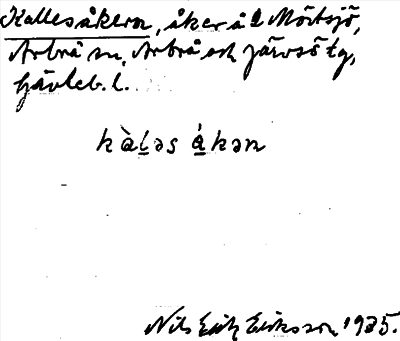 Kallesåkern, åker å 2 Mörtsjö,
Arbrå sn, Arbrå och Järvsö tg,
Gävleb. l.
kàl̲əs á̲kən
Nils Erik Eriksson 1935.